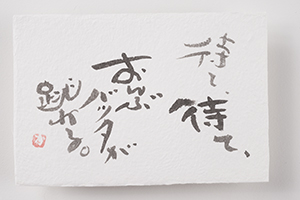 待て、
待て、
おんぶ
バッタが
跳ねる。